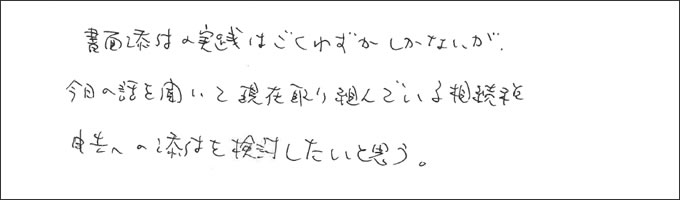 書面添付の実践はごくわずかしかないが、
今日の話を聞いて現在取り組んでいる相続税
申告への添付を検討したいと思う。